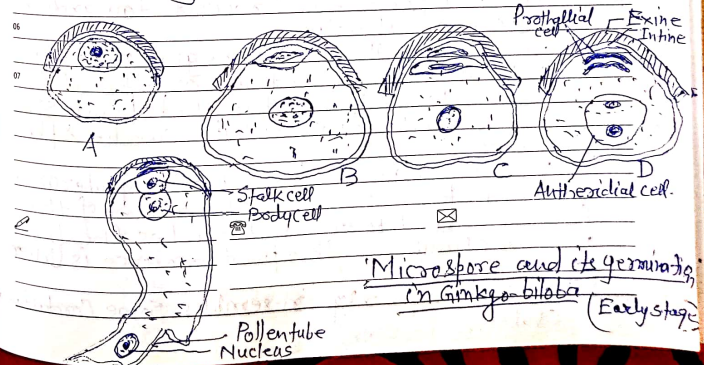 06
07
Prothallial
cell
Exine
Intine
A
B
C
D
Antheridial cell.
Stalk cell
Body cell
Microspore and its germination
in Ginkgo-biloba
(Early stage)
Pollentube
Nucleus